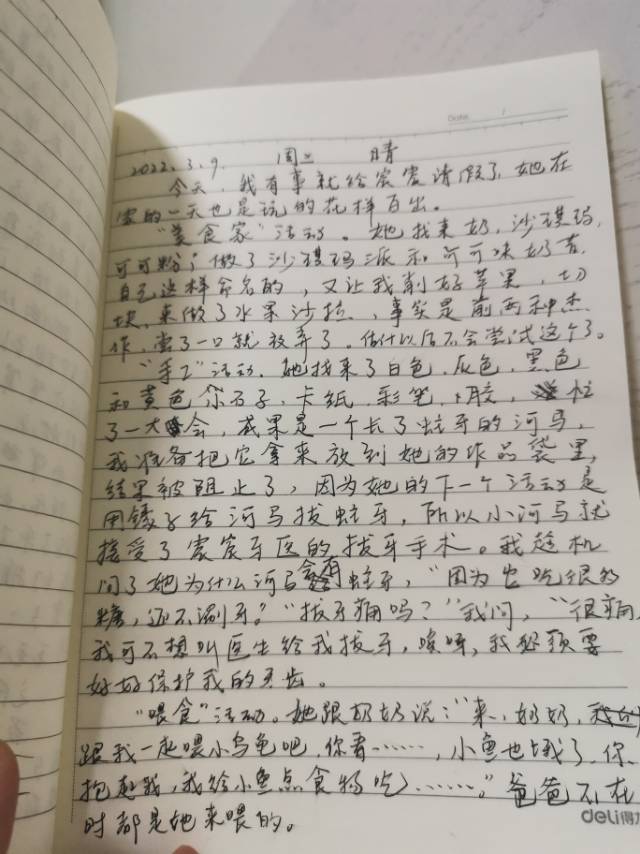 Date. /
2022.3.9. 周三 晴
今天,我有事就给宸宸请假了,她在
家的一天也是玩的花样百出。
"美食家"活动。她找来奶,沙琪玛,
可可粉,做了沙琪玛派和可可味奶昔,
自己这样命名的,又让我削好苹果,切
块,来做了水果沙拉,事实是前两种杰
作,尝了一口就放弃了。估计以后不会尝试这个了。
"手工"活动,她找来了白色,灰色,黑色
和黄色 石子,卡纸,彩笔, 胶,忙
了一大会,成果是一个长了蛀牙的河马,
我准备把它拿来放到她的作品袋里,
结果被阻止了,因为她的下一个活动是
用镊子给河马拔蛀牙,所以小河马就
接受了宸宸牙医的拔牙手术。我趁机
问了她为什么河马会有蛀牙,"因为它吃很多
糖,还不涮牙。""拔牙痛吗?"我问,"很痛,
我可不想叫医生给我拔牙,咳咳,我必须要
好好保护我的牙齿。
"喂食"活动。她跟奶奶说:"来,奶奶,
跟我一起喂小乌龟吧,你看……,小鱼也饿了,你
抱起我,我给小鱼点食物吃……。"爸爸不在
时都是她来喂的。
deli得力